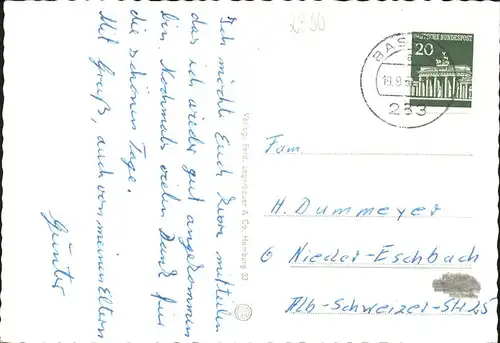 Ich möchte Euch kurz mitteilen
das ich wieder gut angekommen
bin. Nochmals vielen Dank für
die schönen Tage.
Mit Gruß, auch von meinen Eltern
Günter
Verlag: Ferd. Lagerbauer & Co., Hamburg 33
DEUTSCHE BUNDESPOST
20
BAS
19.9.
283
Fam.
H. Dummeyer
6 Nieder-Eschbach
Alb-Schweizer-Str 25